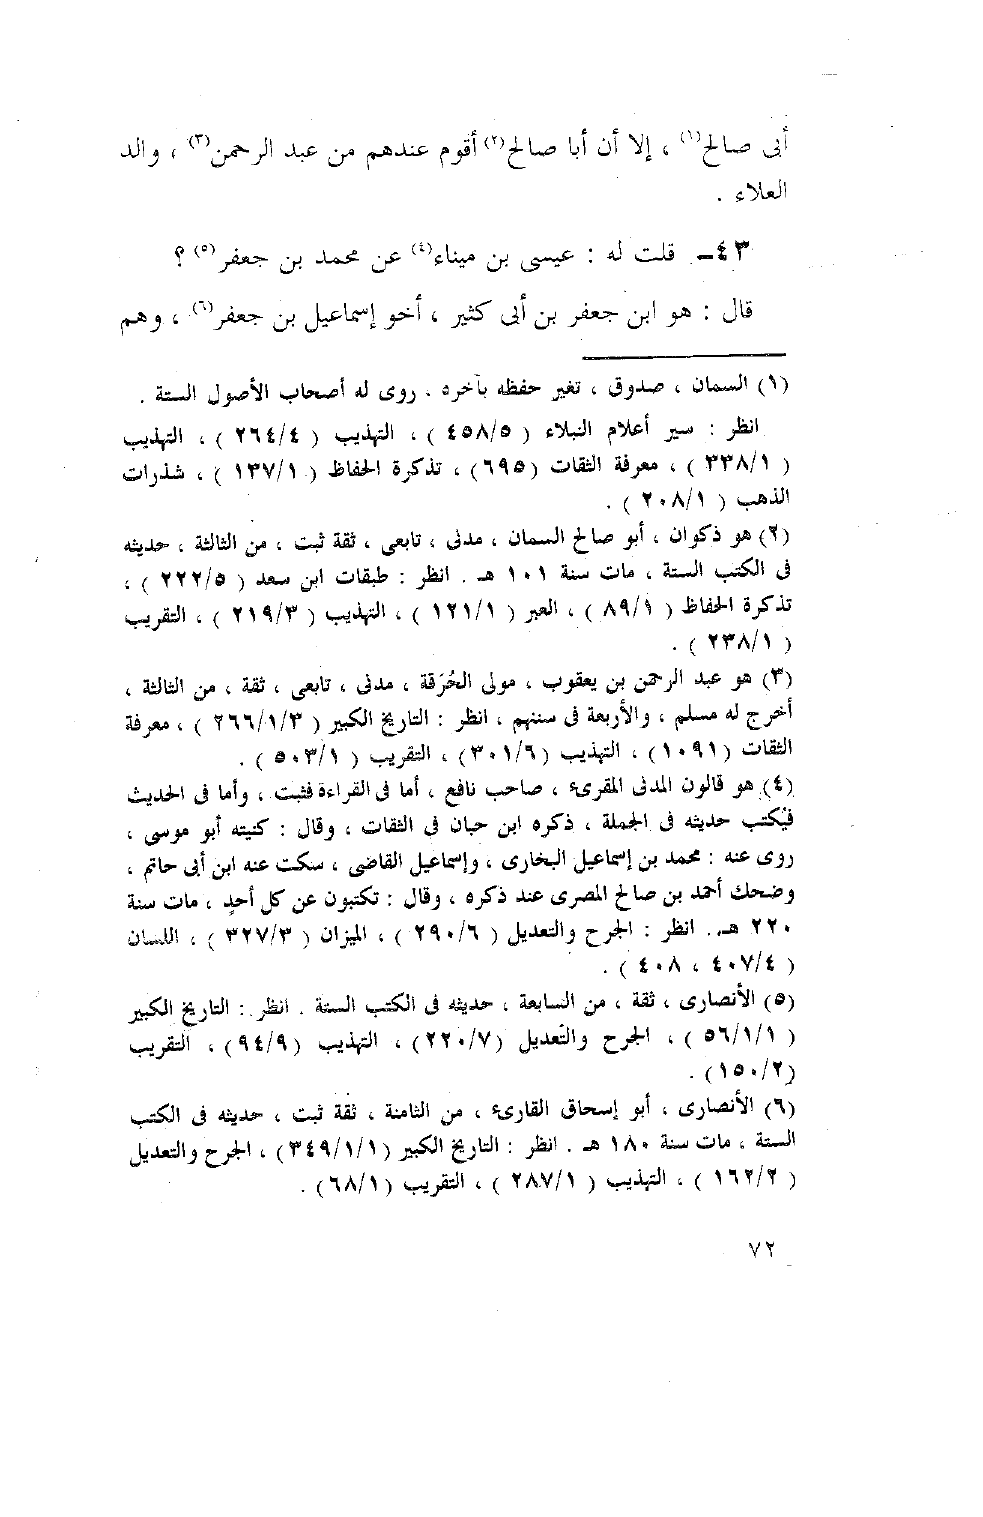 أبى صالح(١) ، إلا أن أبا صالح(٢) أقوم عندهم من عبد الرحمن(٣) ، والد
العلاء .
٤٣ـ قلت له : عيسى بن ميناء(٤) عن محمد بن جعفر(٥) ؟
قال : هو ابن جعفر بن أبى كثير ، أخو إسماعيل بن جعفر(٦) ، وهم
(١) السمان ، صدوق ، تغير حفظه بآخره . روى له أصحاب الأصول الستة .
انظر : سير أعلام النبلاء ( ٤٥٨/٥ ) ، التهذيب ( ٢٦٤/٤ ) ، التهذيب
( ٣٣٨/١ ) ، معرفة الثقات (٦٩٥) ، تذكرة الحفاظ ( ١٣٧/١ ) ، شذرات
الذهب ( ٢٠٨/١ ) .
(٢) هو ذكوان ، أبو صالح السمان ، مدنى ، تابعى ، ثقة ثبت ، من الثالثة ، حديثه
فى الكتب الستة ، مات سنة ١٠١ هـ . انظر : طبقات ابن سعد ( ٢٢٢/٥ ) ،
تذكرة الحفاظ ( ٨٩/١ ) ، العبر ( ١٢١/١ ) ، التهذيب ( ٢١٩/٣ ) ، التقريب
( ٢٣٨/١ ) .
(٣) هو عبد الرحمن بن يعقوب ، مولى الحُرَقة ، مدنى ، تابعى ، ثقة ، من الثالثة ،
أخرج له مسلم ، والأربعة فى سننهم ، انظر : التاريخ الكبير ( ٢٦٦/١/٣ ) ، معرفة
الثقات (١٠٩١) ، التهذيب (٣٠١/٦) ، التقريب ( ٥٠٣/١ ) .
(٤) هو قالون المدنى المقرىء ، صاحب نافع ، أما فى القراءة فثبت ، وأما فى الحديث
فيُكتب حديثه فى الجملة ، ذكره ابن حبان فى الثقات ، وقال : كنيته أبو موسى ،
روى عنه : محمد بن إسماعيل البخارى ، وإسماعيل القاضى ، سكت عنه ابن أبى حاتم ،
وضحك أحمد بن صالح المصرى عند ذكره ، وقال : تكتبون عن كل أحدٍ ، مات سنة
٢٢٠ هـ . انظر : الجرح والتعديل ( ٢٩٠/٦ ) ، الميزان ( ٣٢٧/٣ ) ، اللسان
( ٤٠٧/٤ ، ٤٠٨ ) .
(٥) الأنصارى ، ثقة ، من السابعة ، حديثه فى الكتب الستة . انظر : التاريخ الكبير
( ٥٦/١/١ ) ، الجرح والتعديل (٢٢٠/٧) ، التهذيب (٩٤/٩) ، التقريب
(١٥٠/٢) .
(٦) الأنصارى ، أبو إسحاق القارىء ، من الثامنة ، ثقة ثبت ، حديثه فى الكتب
الستة ، مات سنة ١٨٠ هـ . انظر : التاريخ الكبير (٣٤٩/١/١) ، الجرح والتعديل
( ١٦٢/٢ ) ، التهذيب ( ٢٨٧/١ ) ، التقريب (٦٨/١) .
٧٢